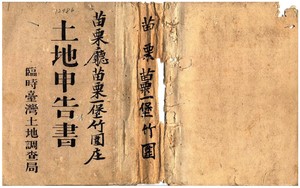 土地申告書
臨時臺灣土地調查局
苗栗廳苗栗一堡竹圍庄
苗栗 苗栗一堡竹圍